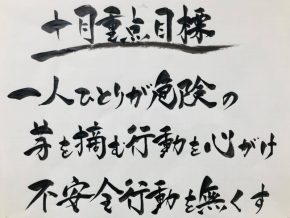 十月重点目標
一人ひとりが危険の
芽を摘む行動を心がけ
不安全行動を無くす